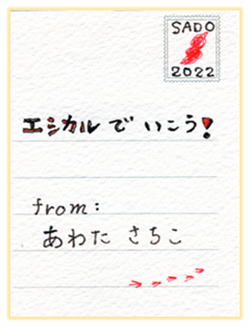 SADO
2022
エシカルでいこう!
from:
あわた さちこ